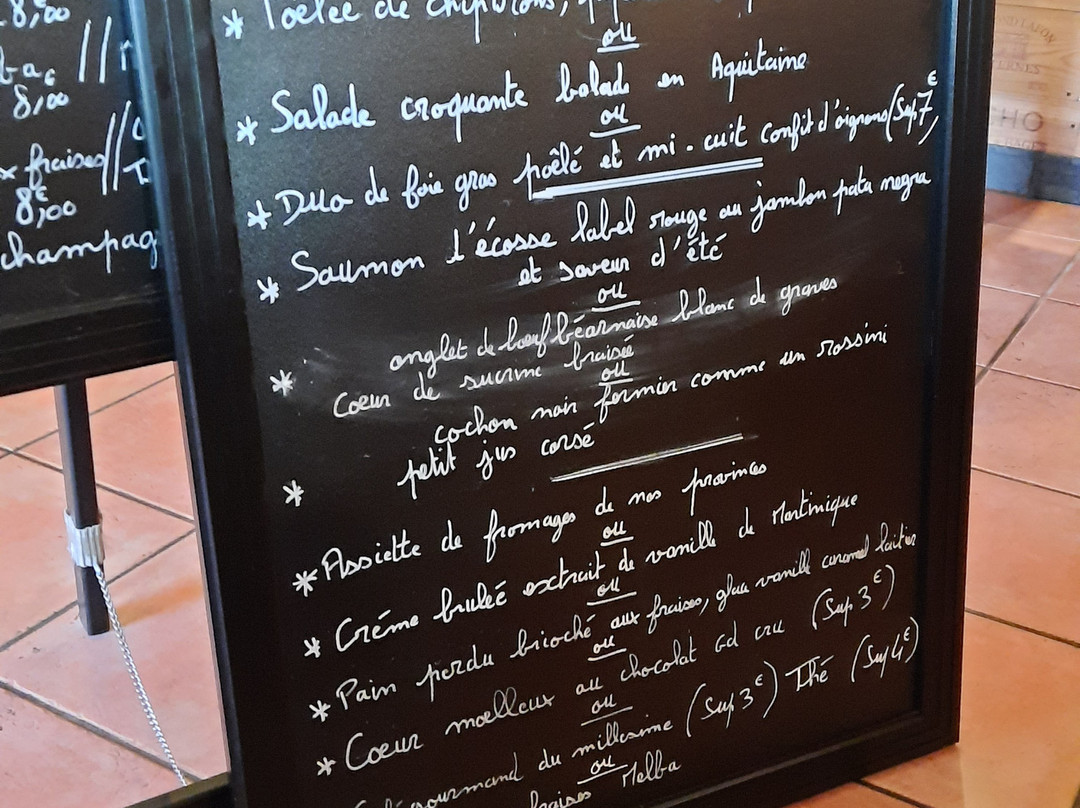 8,00
8,00
x fraises //
8€,00
champag
* Poêlée de chipirons,
ou
* Salade croquante balade en Aquitaine
ou
* Duo de foie gras poêlé et mi-cuit confit d'oignons (Sup 7€,
* Saumon d'écosse label rouge au jambon pata negra
et saveur d'été
ou
* onglet de bœuf béarnaise blanc de graves
Coeur de sucrine braisée
ou
* cochon noir fermier comme un rossini
petit jus corsé
* Assiette de fromages de nos provinces
ou
* Crème bruleé extrait de vanille de Martinique
ou
* Pain perdu brioché aux fraises, glace vanille caramel laitier
ou
* Coeur moelleux au chocolat Gd cru (Sup 3€)
ou
gourmand du millesime (Sup 3€) Thé (Sup 4€)
ou
fraises Melba